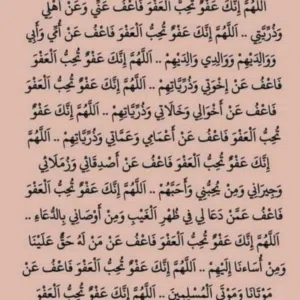 اللَّهُمَّ إِنَّكَ عَفُوٌّ تُحِبُّ الْعَفْوَ فَاعْفُ عَنِّي وَعَنْ أَهْلِي
وَذُرِّيَّتِي .. اَللَّهُمَّ إِنَّكَ عَفُوٌّ تُحِبُّ الْعَفْوَ فَاعْفُ عَنْ أُمِّي وَأَبِي
وَوَالِدِيْهِمْ وَوَالِدِي وَالِدِيْهِمْ .. اَللَّهُمَّ إِنَّكَ عَفُوٌّ تُحِبُّ الْعَفْوَ
فَاعْفُ عَنْ إِخْوَتِي وَذُرِّيَّاتِهِمْ .. اَللَّهُمَّ إِنَّكَ عَفُوٌّ تُحِبُّ الْعَفْوَ
فَاعْفُ عَنْ أَخْوَالِي وَخَالَاتِي وَذُرِّيَّاتِهِمْ .. اَللَّهُمَّ إِنَّكَ عَفُوٌّ
تُحِبُّ الْعَفْوَ فَاعْفُ عَنْ أَعْمَامِي وَعَمَّاتِي وَذُرِّيَّاتِهِمْ .. اَللَّهُمَّ
إِنَّكَ عَفُوٌّ تُحِبُّ الْعَفْوَ فَاعْفُ عَنْ أَصْدِقَائِي وَزُمَلَائِي
وَجِيرَانِي وَمِنْ يُحِبُّنِي وَأُحِبُّهُمْ .. اَللَّهُمَّ إِنَّكَ عَفُوٌّ تُحِبُّ الْعَفْوَ
فَاعْفُ عَمَّنْ دَعَا لِي فِي ظَهْرِ الْغَيْبِ وَمِنْ أَوْصَانِي بِالدُّعَاءِ ..
اَللَّهُمَّ إِنَّكَ عَفُوٌّ تُحِبُّ الْعَفْوَ فَاعْفُ عَنْ مَنْ لَهُ حَقٌّ عَلَيْنَا
وَمِنْ أَسَأْنَا إِلَيْهِمْ .. اَللَّهُمَّ إِنَّكَ عَفُوٌّ تُحِبُّ الْعَفْوَ فَاعْفُ عَنْ
مَوْتَانَا وَمَوْتَى الْمُسْلِمِينَ .. اَللَّهُمَّ إِنَّكَ عَفُوٌّ تُحِبُّ الْعَفْوَ